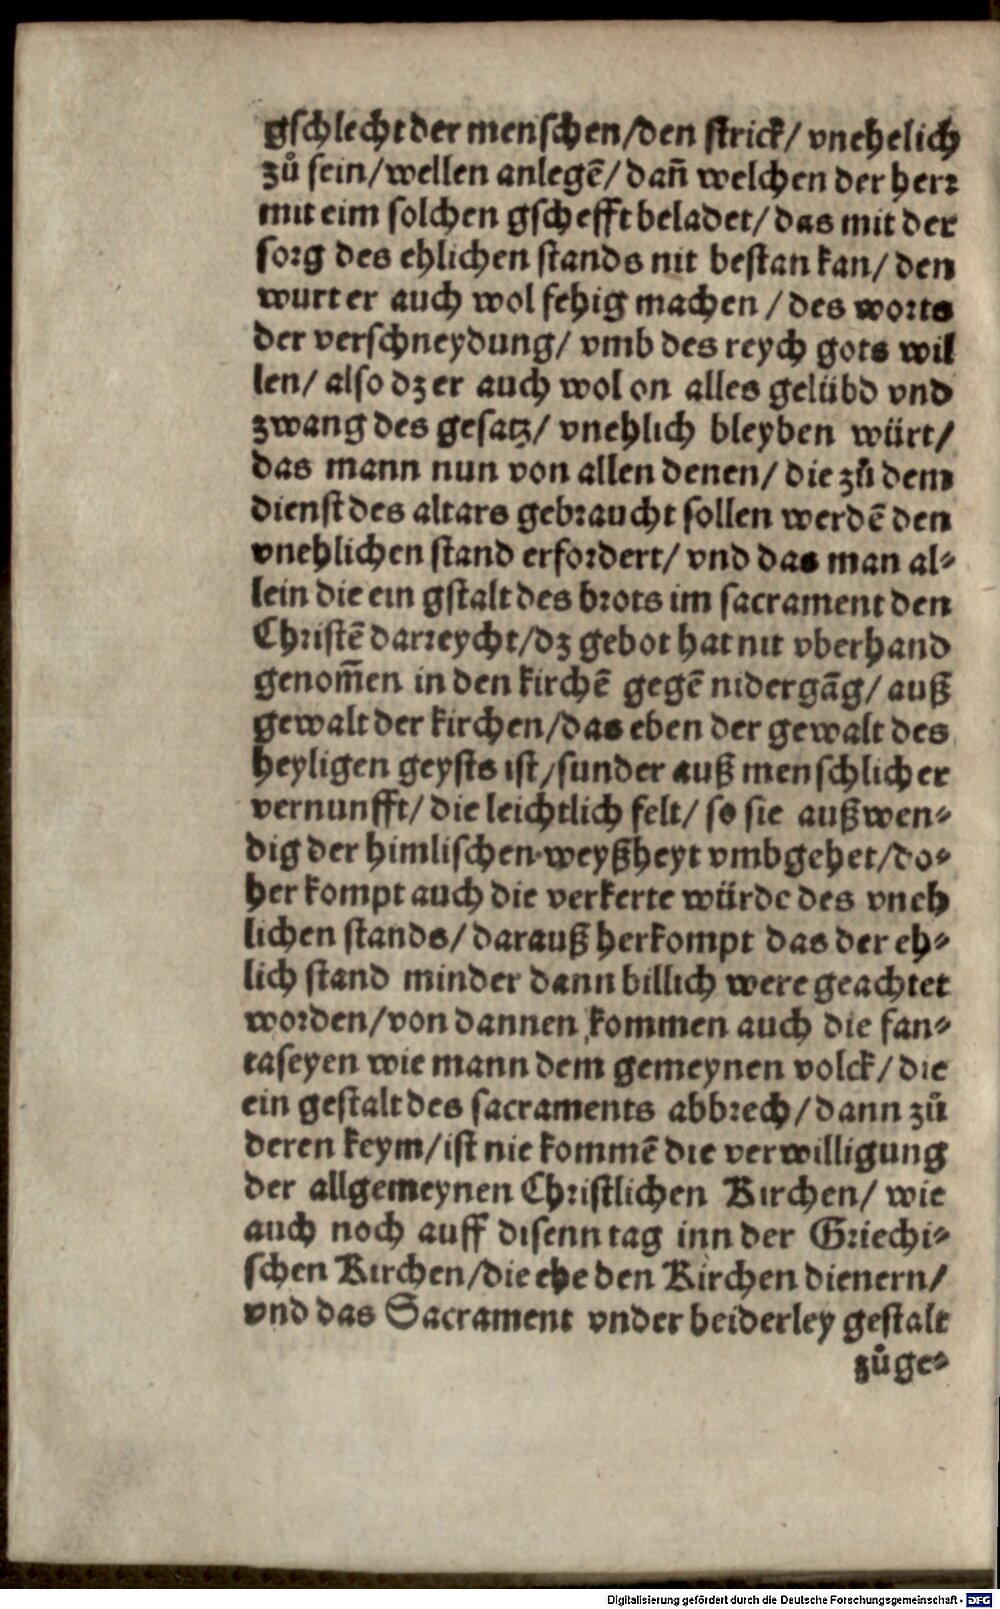 gschlecht der menschen/den strick/ vnehelich
zů sein/wellen anlegē/ dañ welchen der herꝛ
mit eim solchen gschefft beladet/ das mit der
sorg des ehlichen stands nit bestan kan/ den
wurt er auch wol fehig machen / des worts
der verschneydung/ vmb des reych gots wil
len/ also dz er auch wol on alles gelübd vnd
zwang des gesatz/ vnehlich bleyben würt/
das mann nun von allen denen/ die zů dem
dienst des altars gebraucht sollen werdē den
vnehlichen stand erfordert/ vnd das man al⸗
lein die ein gstalt des brots im sacrament den
Christē darreycht/dz gebot hat nit vberhand
genom̄en in den kirchē gegē nidergāg/ auß
gewalt der kirchen/das eben der gewalt des
heyligen geysts ist/sunder auß menschlicher
vernunfft/ die leichtlich felt/ so sie außwen⸗
dig der himlischen weyßheyt vmbgehet/do⸗
her kompt auch die verkerte würde des vneh
lichen stands/ darauß herkompt das der eh⸗
lich stand minder dann billich were geachtet
worden/von dannen kommen auch die fan⸗
taseyen wie mann dem gemeynen volck/ die
ein gestalt des sacraments abbrech/dann zů
deren keym/ist nie kommē die verwilligung
der allgemeynen Christlichen Kirchen/ wie
auch noch auff disenn tag inn der Griechi⸗
schen Kirchen/die ehe den Kirchen dienern/
vnd das Sacrament vnder beiderley gestalt
zůge⸗
Digitalisierung gefördert durch die Deutsche Forschungsgemeinschaft - DFG